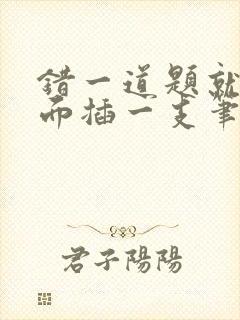 错一道题就
而插一支筆
君子陽陽